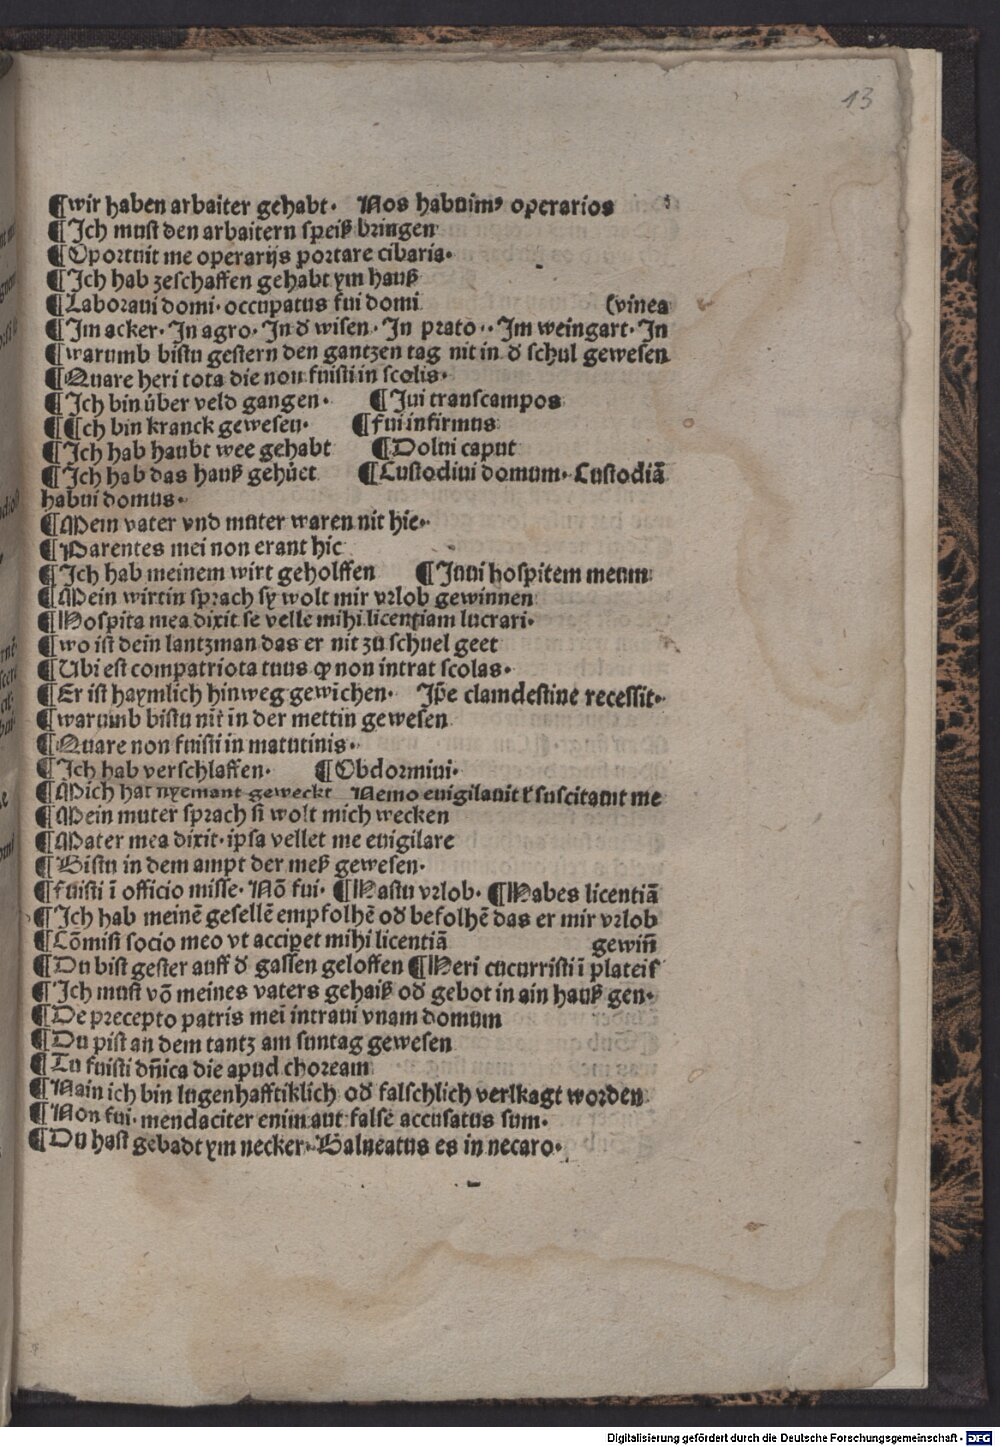 13
¶wir haben arbaiter gehabt· Nos habuimꝰ operarios
¶Ich must den arbaitern speiß bringen
¶Oportuit me operarijs portare cibaria·
¶Ich hab zeschaffen gehabt ym hauß
¶Laboraui domi·occupatus fui domi (vinea
¶Im acker·In agro·In d̕ wisen·In prato··Im weingart·In
¶warumb bistu gestern den gantzen tag nit in d̕ schul gewesen
¶Quare heri tota die non fuisti in scolis·
¶Ich bin über veld gangen· ¶Iui transcampos
¶¶ch bin kranck gewesen· ¶fui infirmus
¶Ich hab haubt wee gehabt ¶Dolui caput
¶Ich hab das hauß gehüet ¶Custodiui domum·Custodiā
habui domus·
¶Mein vater vnd muter waren nit hie·
¶Parentes mei non erant hic
¶Ich hab meinem wirt geholffen ¶Iuui hospitem meum
¶Mein wirtin sprach sy wolt mir vrlob gewinnen
¶Hospita mea dixit se velle mihi licentiam lucrari·
¶wo ist dein lantzman das er nit zu schuel geet
¶Ubi est compatriota tuus ꝙ non intrat scolas·
¶Er ist haymlich hinweg gewichen· Ip̄e clamdestine recessit·
¶warumb bistu nit in der mettin gewesen
¶Quare non fuisti in matutinis·
¶Ich hab verschlaffen· ¶Obdormiui·
¶Mich hat nyemant geweckt Nemo euigilauit ł suscitauit me
¶Mein muter sprach si wolt mich wecken
¶Mater mea dixit·ipsa vellet me euigilare
¶Bistu in dem ampt der meß gewesen·
¶fuisti ī officio misse·Nō fui·¶Hastu vrlob·¶Habes licentiā
¶Ich hab meinē gesellē empfolhē od̕ befolhē das er mir vrlob
¶Cōmisi socio meo vt acciꝑet mihi licentiā gewiñ
¶Du bist gester auff d̕ gassen geloffen ¶Heri cucurristi ī plateis
¶Ich must vō meines vaters gehaiß od̕ gebot in ain hauß gen·
¶De precepto patris mei intraui vnam domum
¶Du pist an dem tantz am suntag gewesen
¶Tu fuisti dn̄ica die apud choream
¶Nain ich bin lugenhafftiklich od̕ falschlich verlkagt worden
¶Non fui·mendaciter enim aut false accusatus sum·
¶Du hast gebadt ym necker·Balneatus es in necaro·
Digitalisierung gefördert durch die Deutsche Forschungsgemeinschaft - DFG